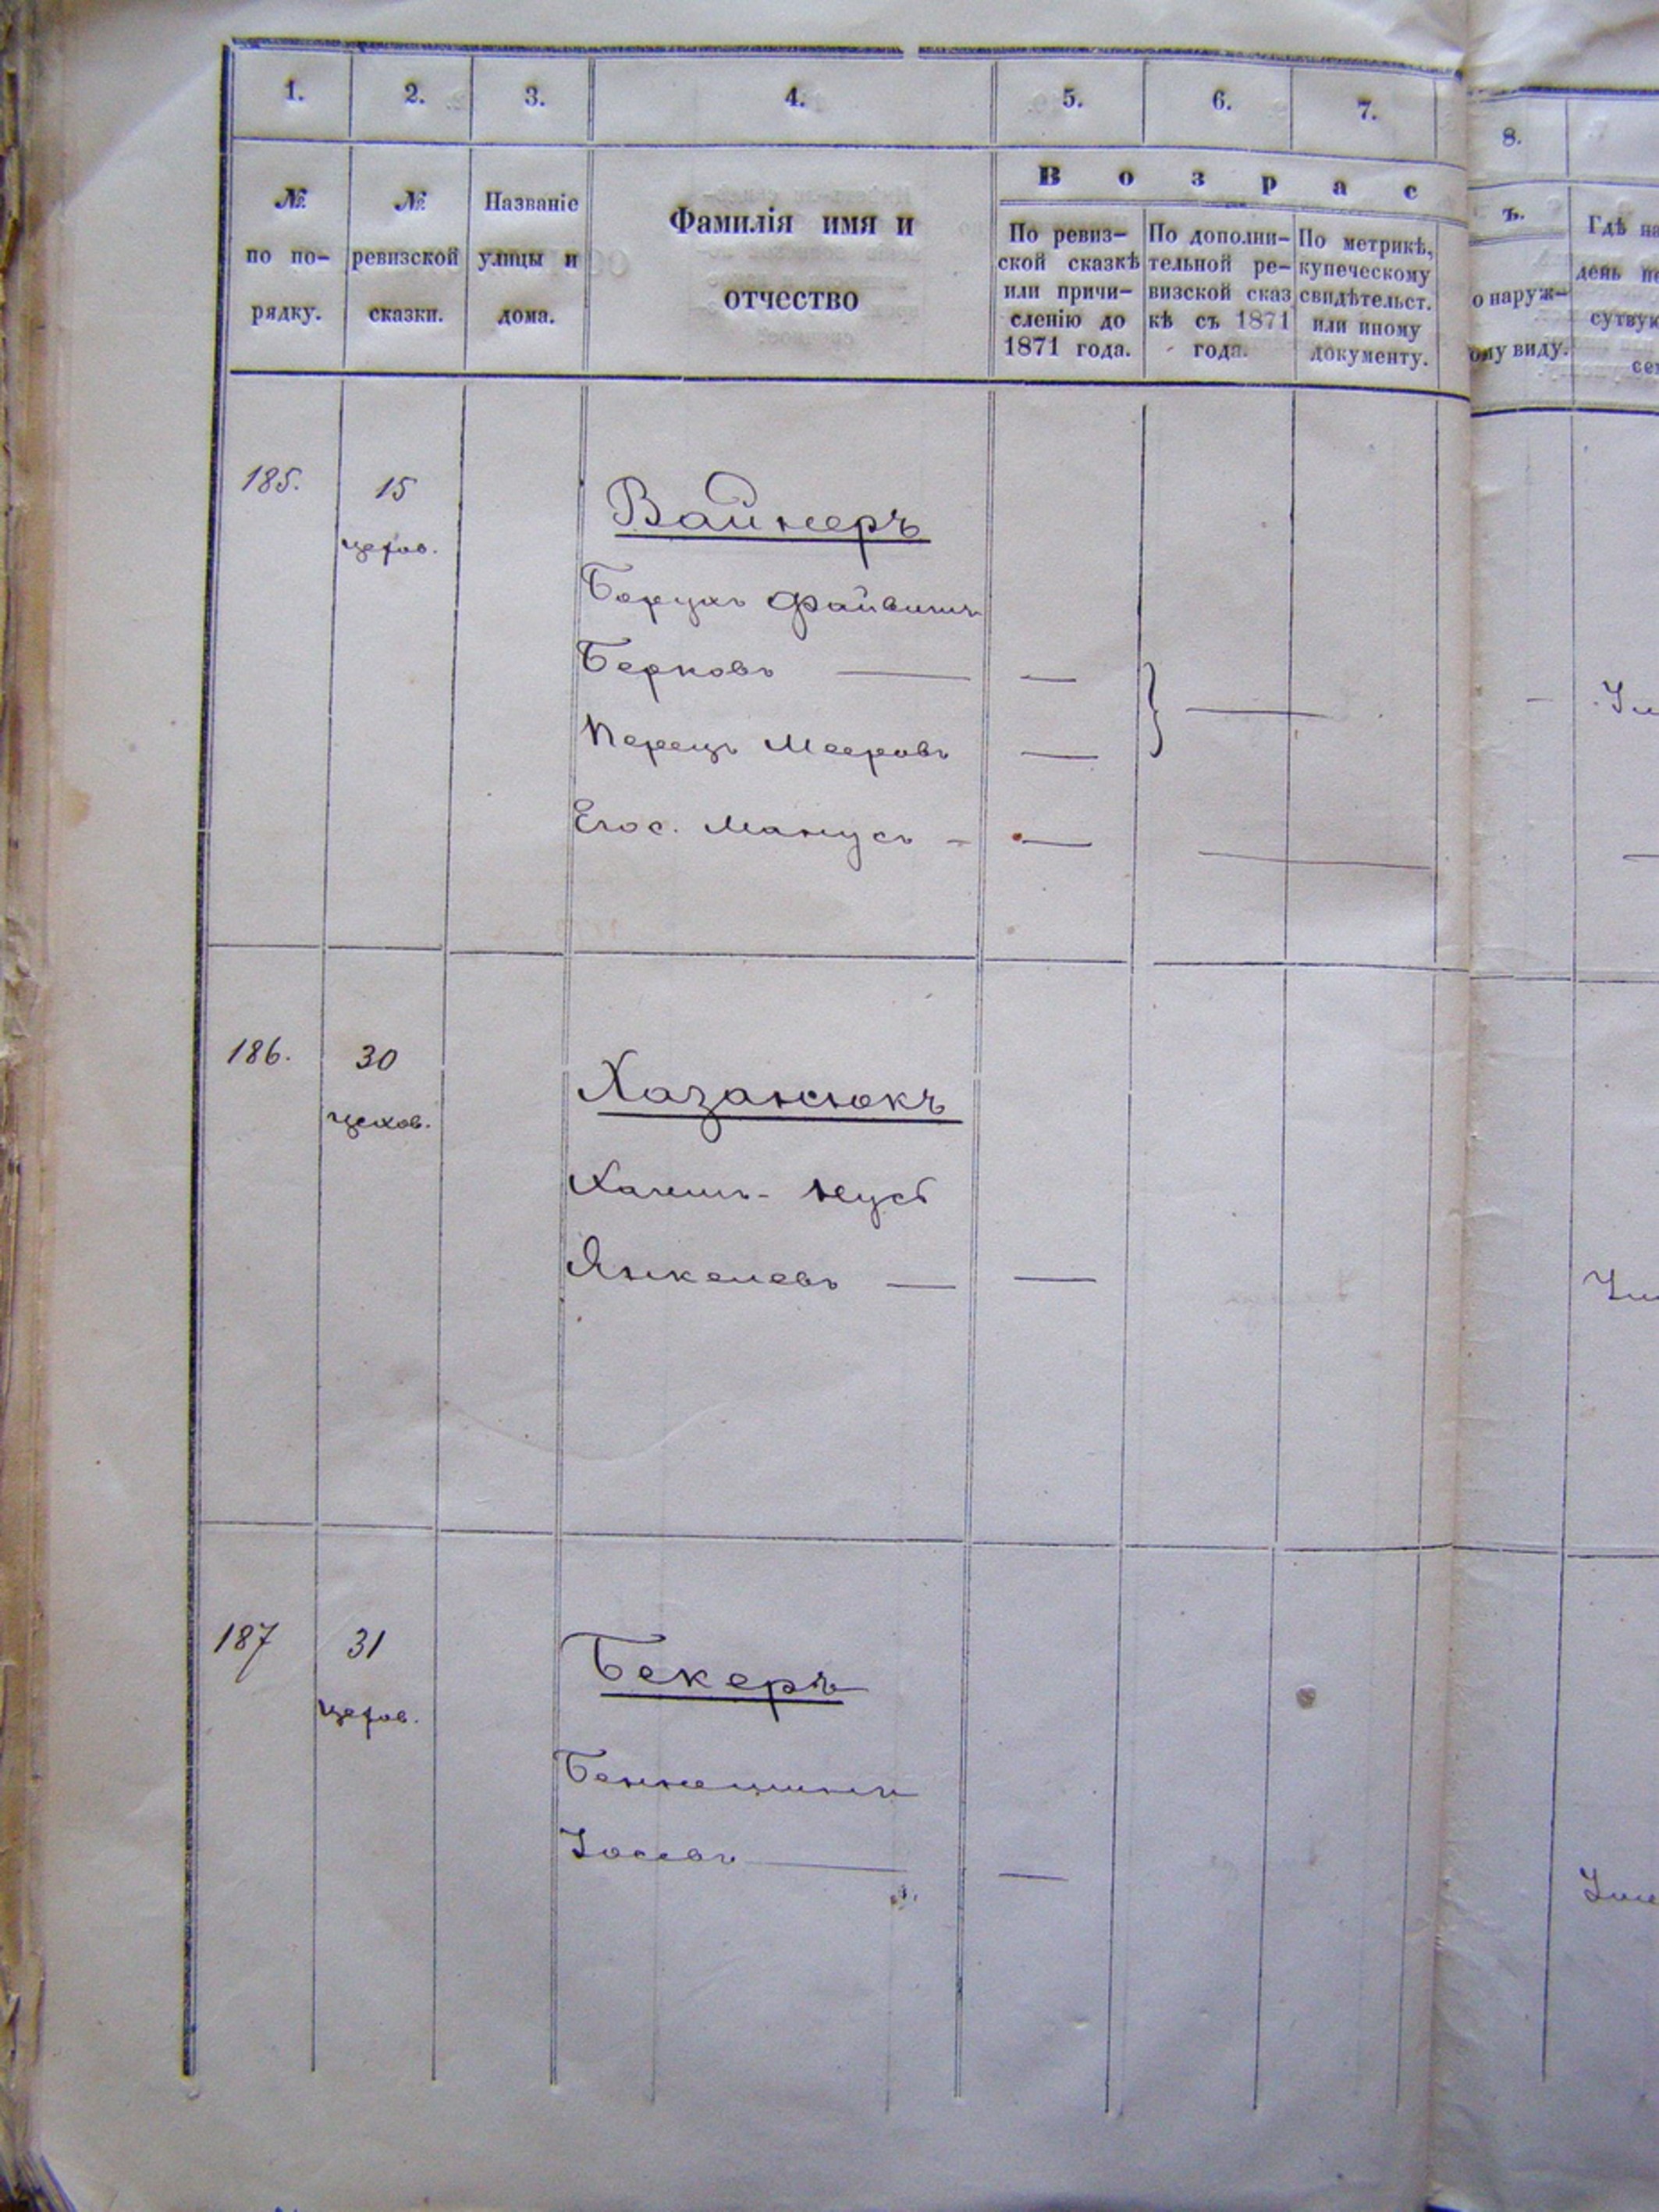 1. 2. 3. 4. 5. 6. 7. 8.
№ по по-рядку.
№ ревизской сказки.
Названіе улицы и дома.
Фамилія имя и
отчество
В о з р а с
ъ.
По ревиз-
ской сказкѣ
или причи-
сленію до
1871 года.
По дополни-
тельной ре-
визской сказ
кѣ съ 1871
года.
По метрикѣ,
купеческому
свидѣтельст.
или иному
документу.
о наруж-
ому виду.
Гдѣ на
день
сутвую
185. 15 Вайнеръ
цехов.
Борухъ Файвишъ
Берковъ —
Перецъ Мееровъ —
Егос. Манусъ - —
186. 30 Хазанюкъ
цехов.
Янкелевъ — —
187 31 Бекеръ
цехов.
Іосевъ — —